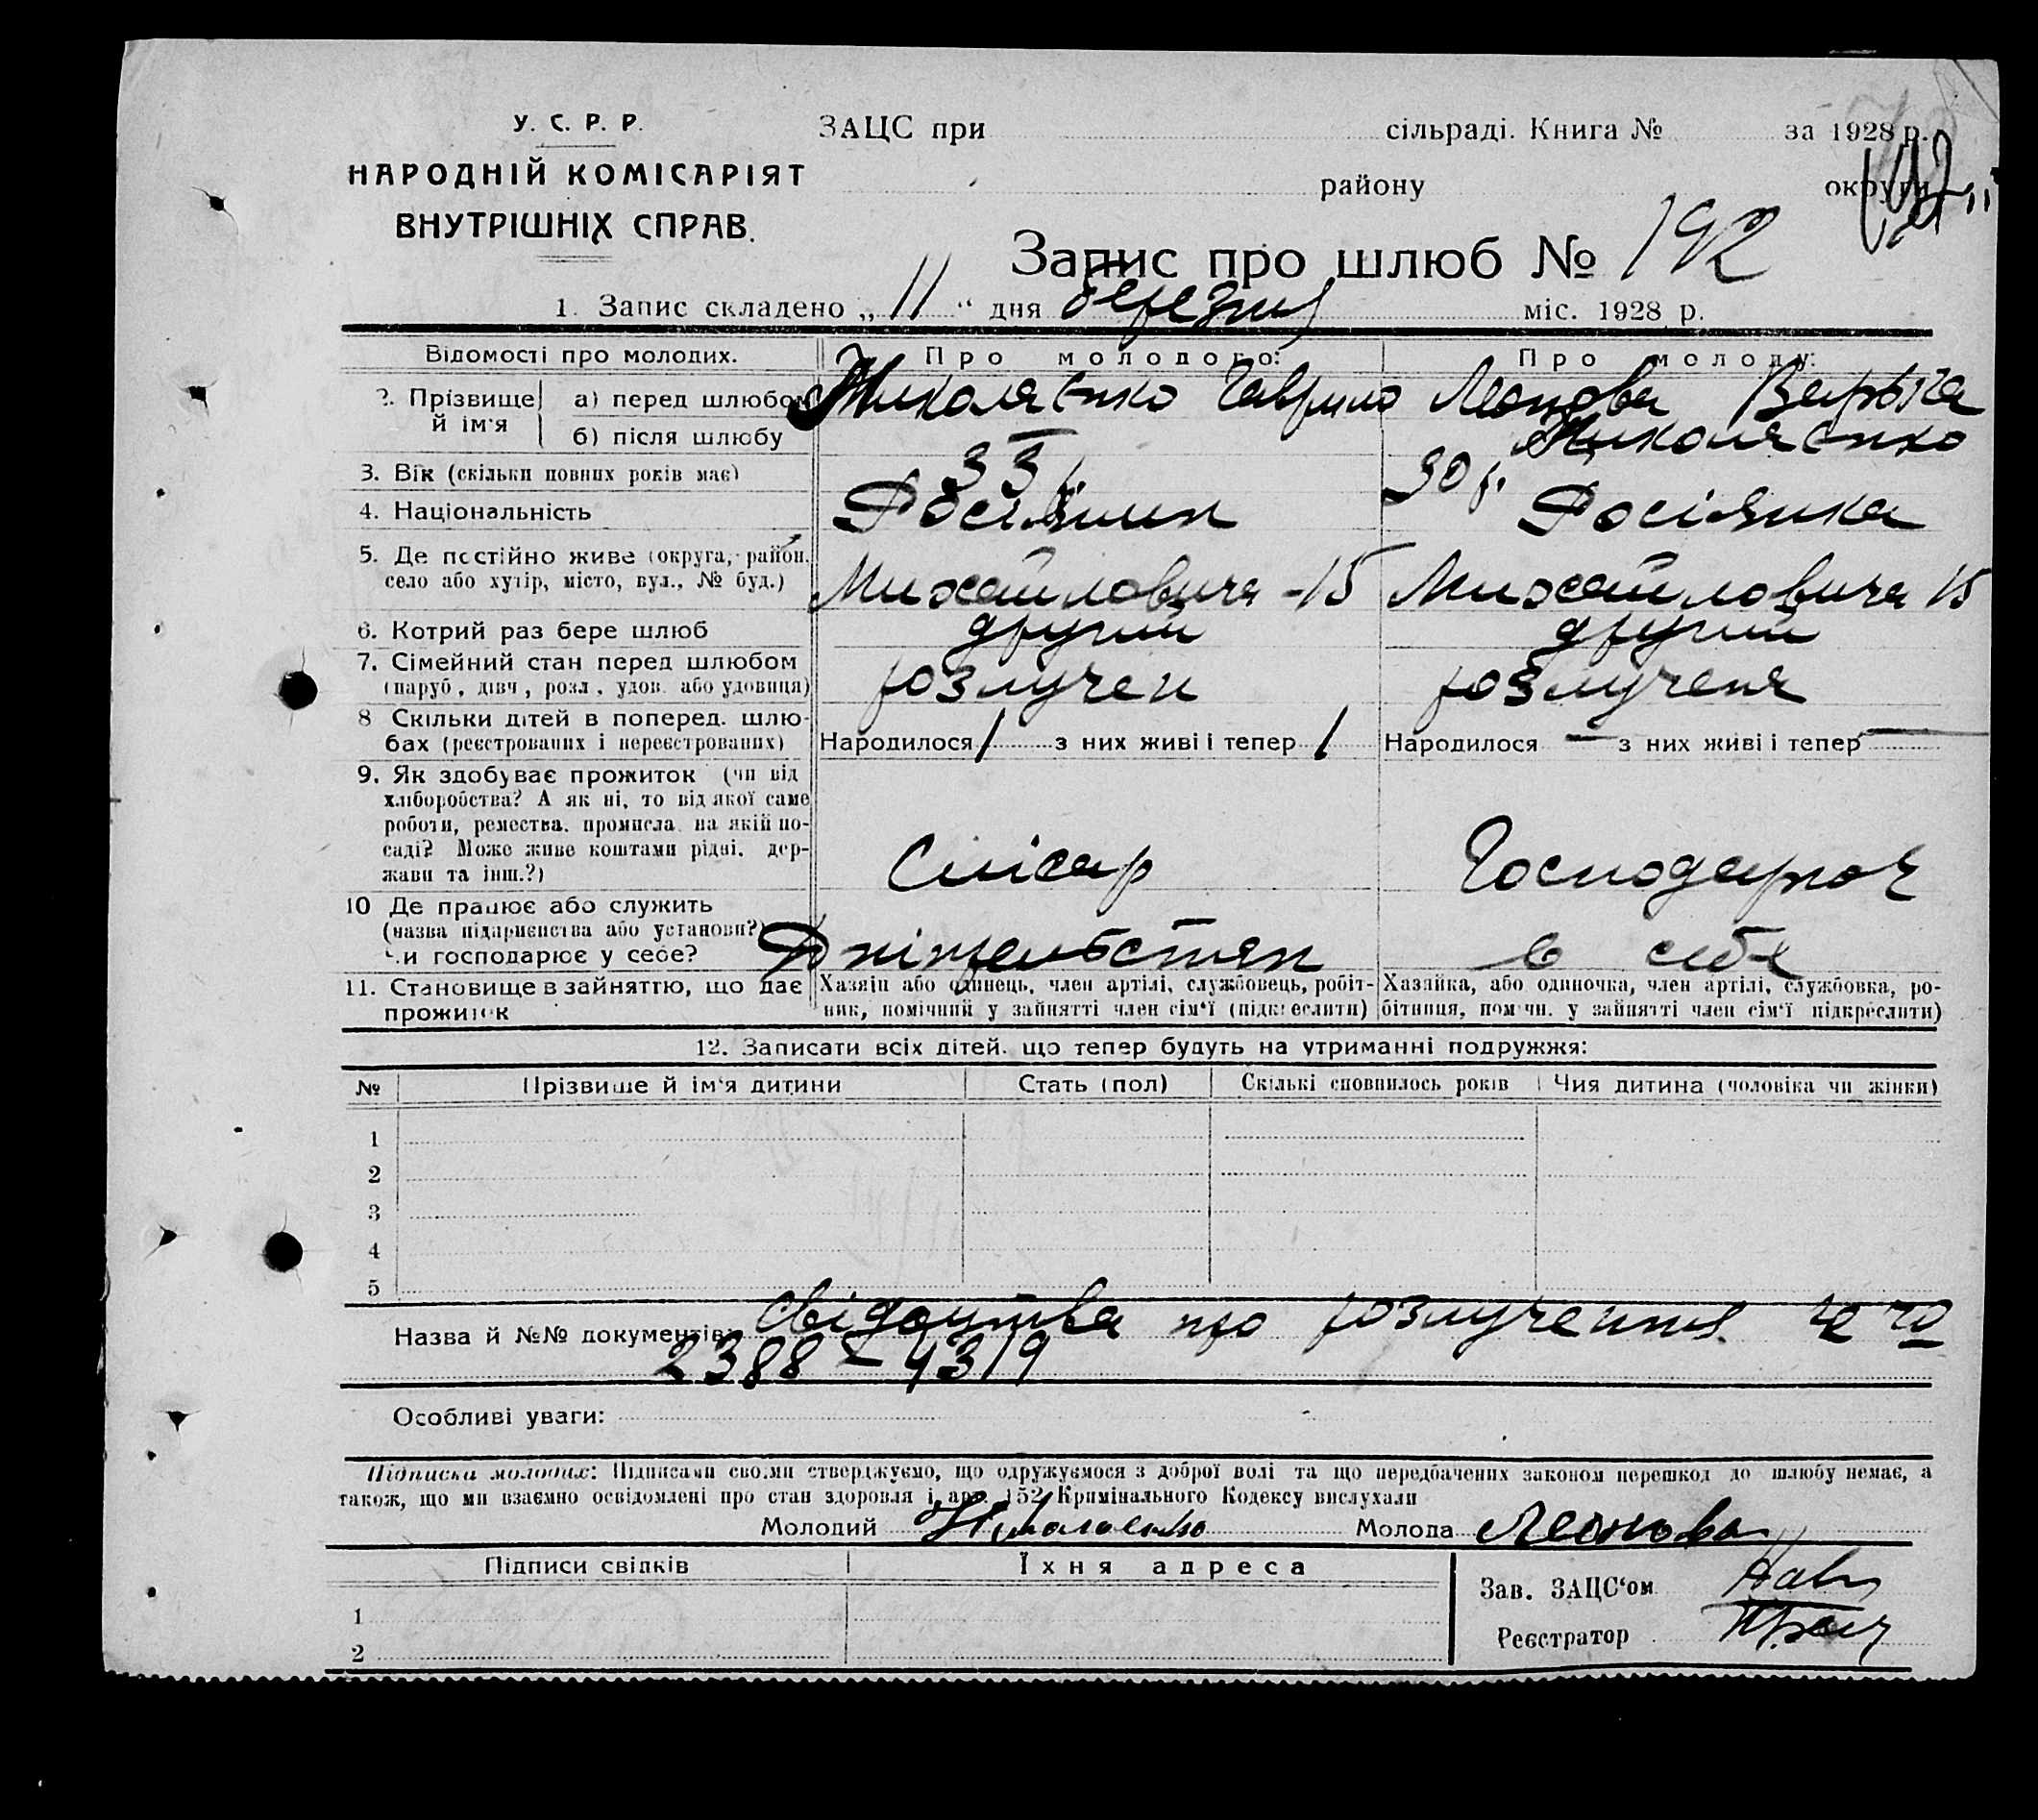 У. С. Р. Р.
НАРОДНІЙ КОМІСАРІЯТ
ВНУТРІШНІХ СПРАВ.
ЗАЦС при сільраді. Книга № за 1928 р.
району округи
Запис про шлюб № 192
1. Запис складено „ 11 “ дня березня міс. 1928 р.
Відомості про молодих. Про молодого: Про молоду:
2. Прізвище й ім'я а) перед шлюбом Николаєнко Гаврило Леонова
б) після шлюбу Николаєнко
3. Вік (скільки повних років має) 33 р. 30 р.
4. Національність Росіянин Росіянка
5. Де постійно живе (округа, район, село або хутір, місто, вул., № буд.) Михайловича - 15 Михайловича 15
6. Котрий раз бере шлюб другий другий
7. Сімейний стан перед шлюбом (паруб., дівч., розл., удов. або удовиця) розлучен розлученя
8 Скільки дітей в поперед. шлюбах (реєстрованих і нереєстрованих) Народилося 1 з них живі і тепер 1 Народилося — з них живі і тепер —
9. Як здобуває прожиток (чи від
хліборобства? А як ні, то від якої саме
роботи, ремества, промисла, на якій по-
саді? Може живе коштами рідні, дер-
жави та інш.?) Слісар Господарює
10 Де працює або служить
(назва підприємства або установи?)
Чи господарює у себе? в себе
11. Становище в зайняттю, що дає прожиток
Хазяїн або одинець, член артілі, службовець, робіт-
ник, помічний у зайнятті член сім'ї (підкреслити)
Хазяйка, або одиночка, член артілі, службовка, ро-
бітниця, помічн. у зайнятті член сім'ї підкреслити)
12. Записати всіх дітей, що тепер будуть на утриманні подружжя:
№ Прізвище й ім'я дитини Стать (пол) Скількі сповнилось років Чия дитина (чоловіка чи жінки)
1
2
3
4
5
Назва й №№ документів: свідоцтва про розлучення
2388 - 4319
Особливі уваги:
Підписка молодих: Підписами своїми стверджуємо, що одружуємося з доброї волі та що передбачених законом перешкод до шлюбу немає, а
також, що ми взаємно освідомлені про стан здоровля і арт. 152 Кримінального Кодексу вислухали
Молодий Николаенко Молода Леонова
Підписи свідків Їхня адреса
1
2
Зав. ЗАЦС'ом
Реєстратор